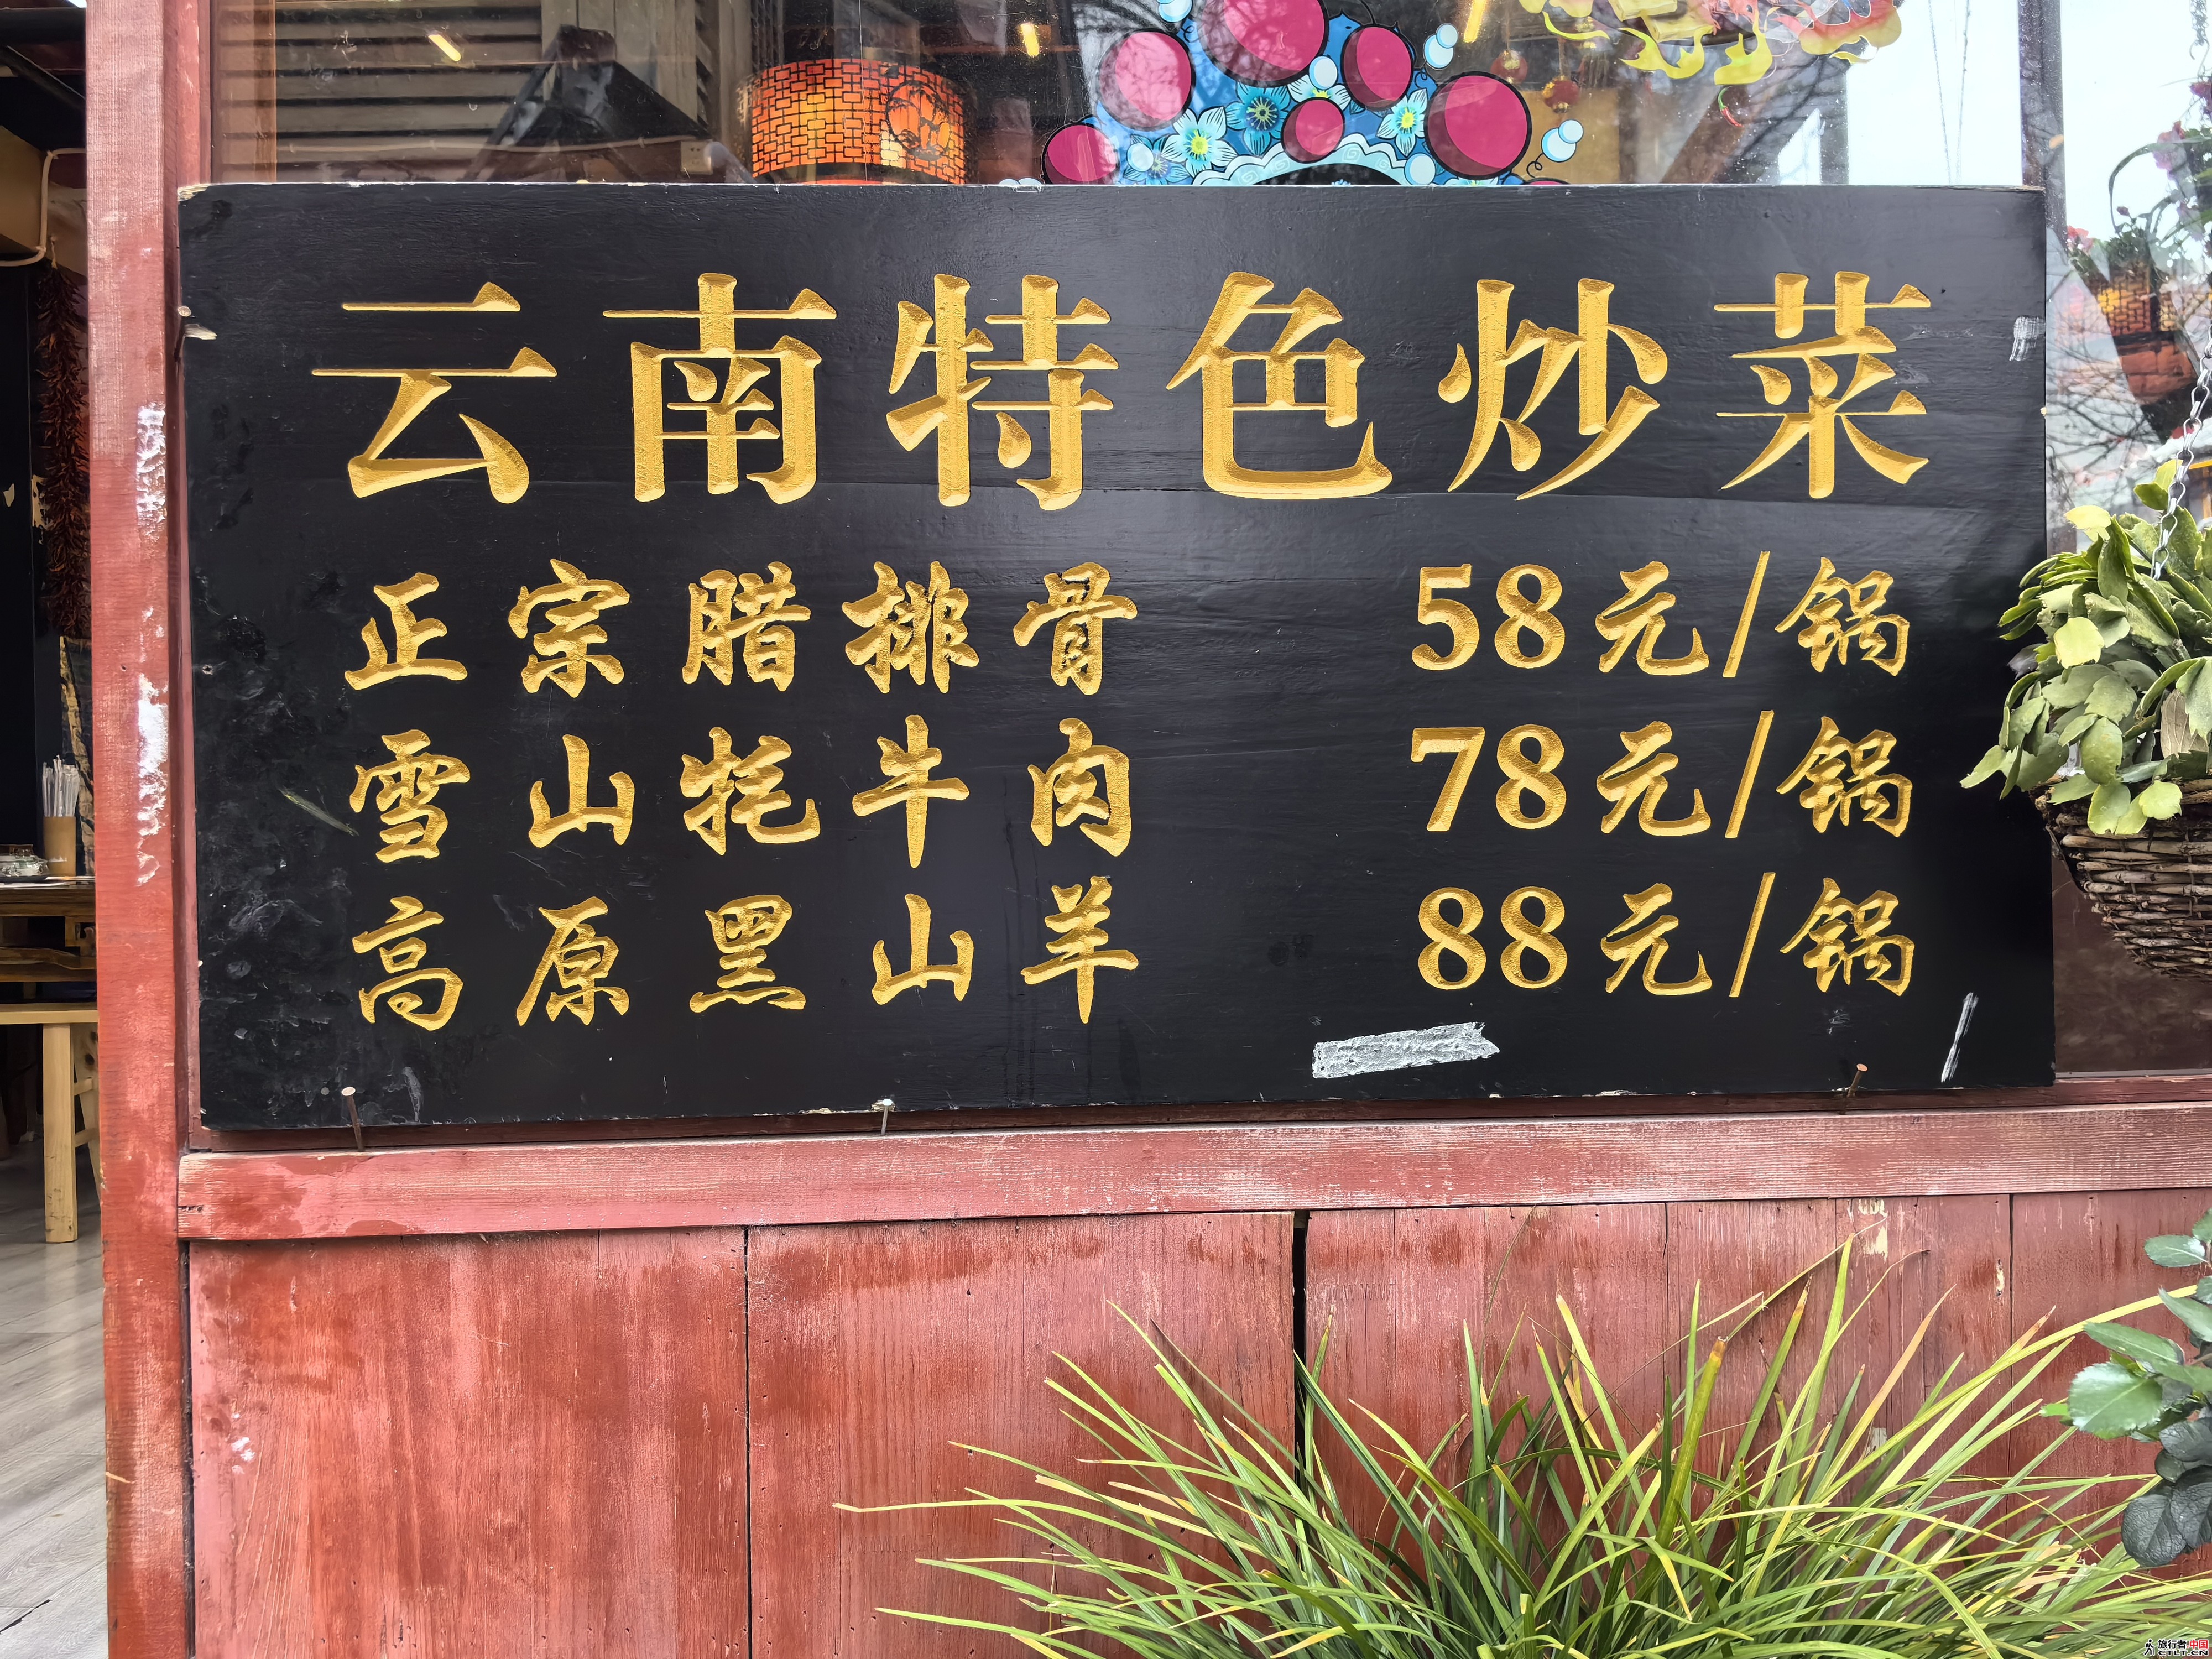 云南特色炒菜
正宗腊排骨 58元/锅
雪山牦牛肉 78元/锅
高原黑山羊 88元/锅
旅行者中国
CTLT.CN